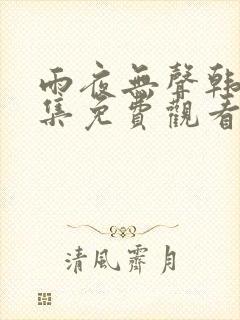 雨夜無聲韩
集免費觀看
清風霽月